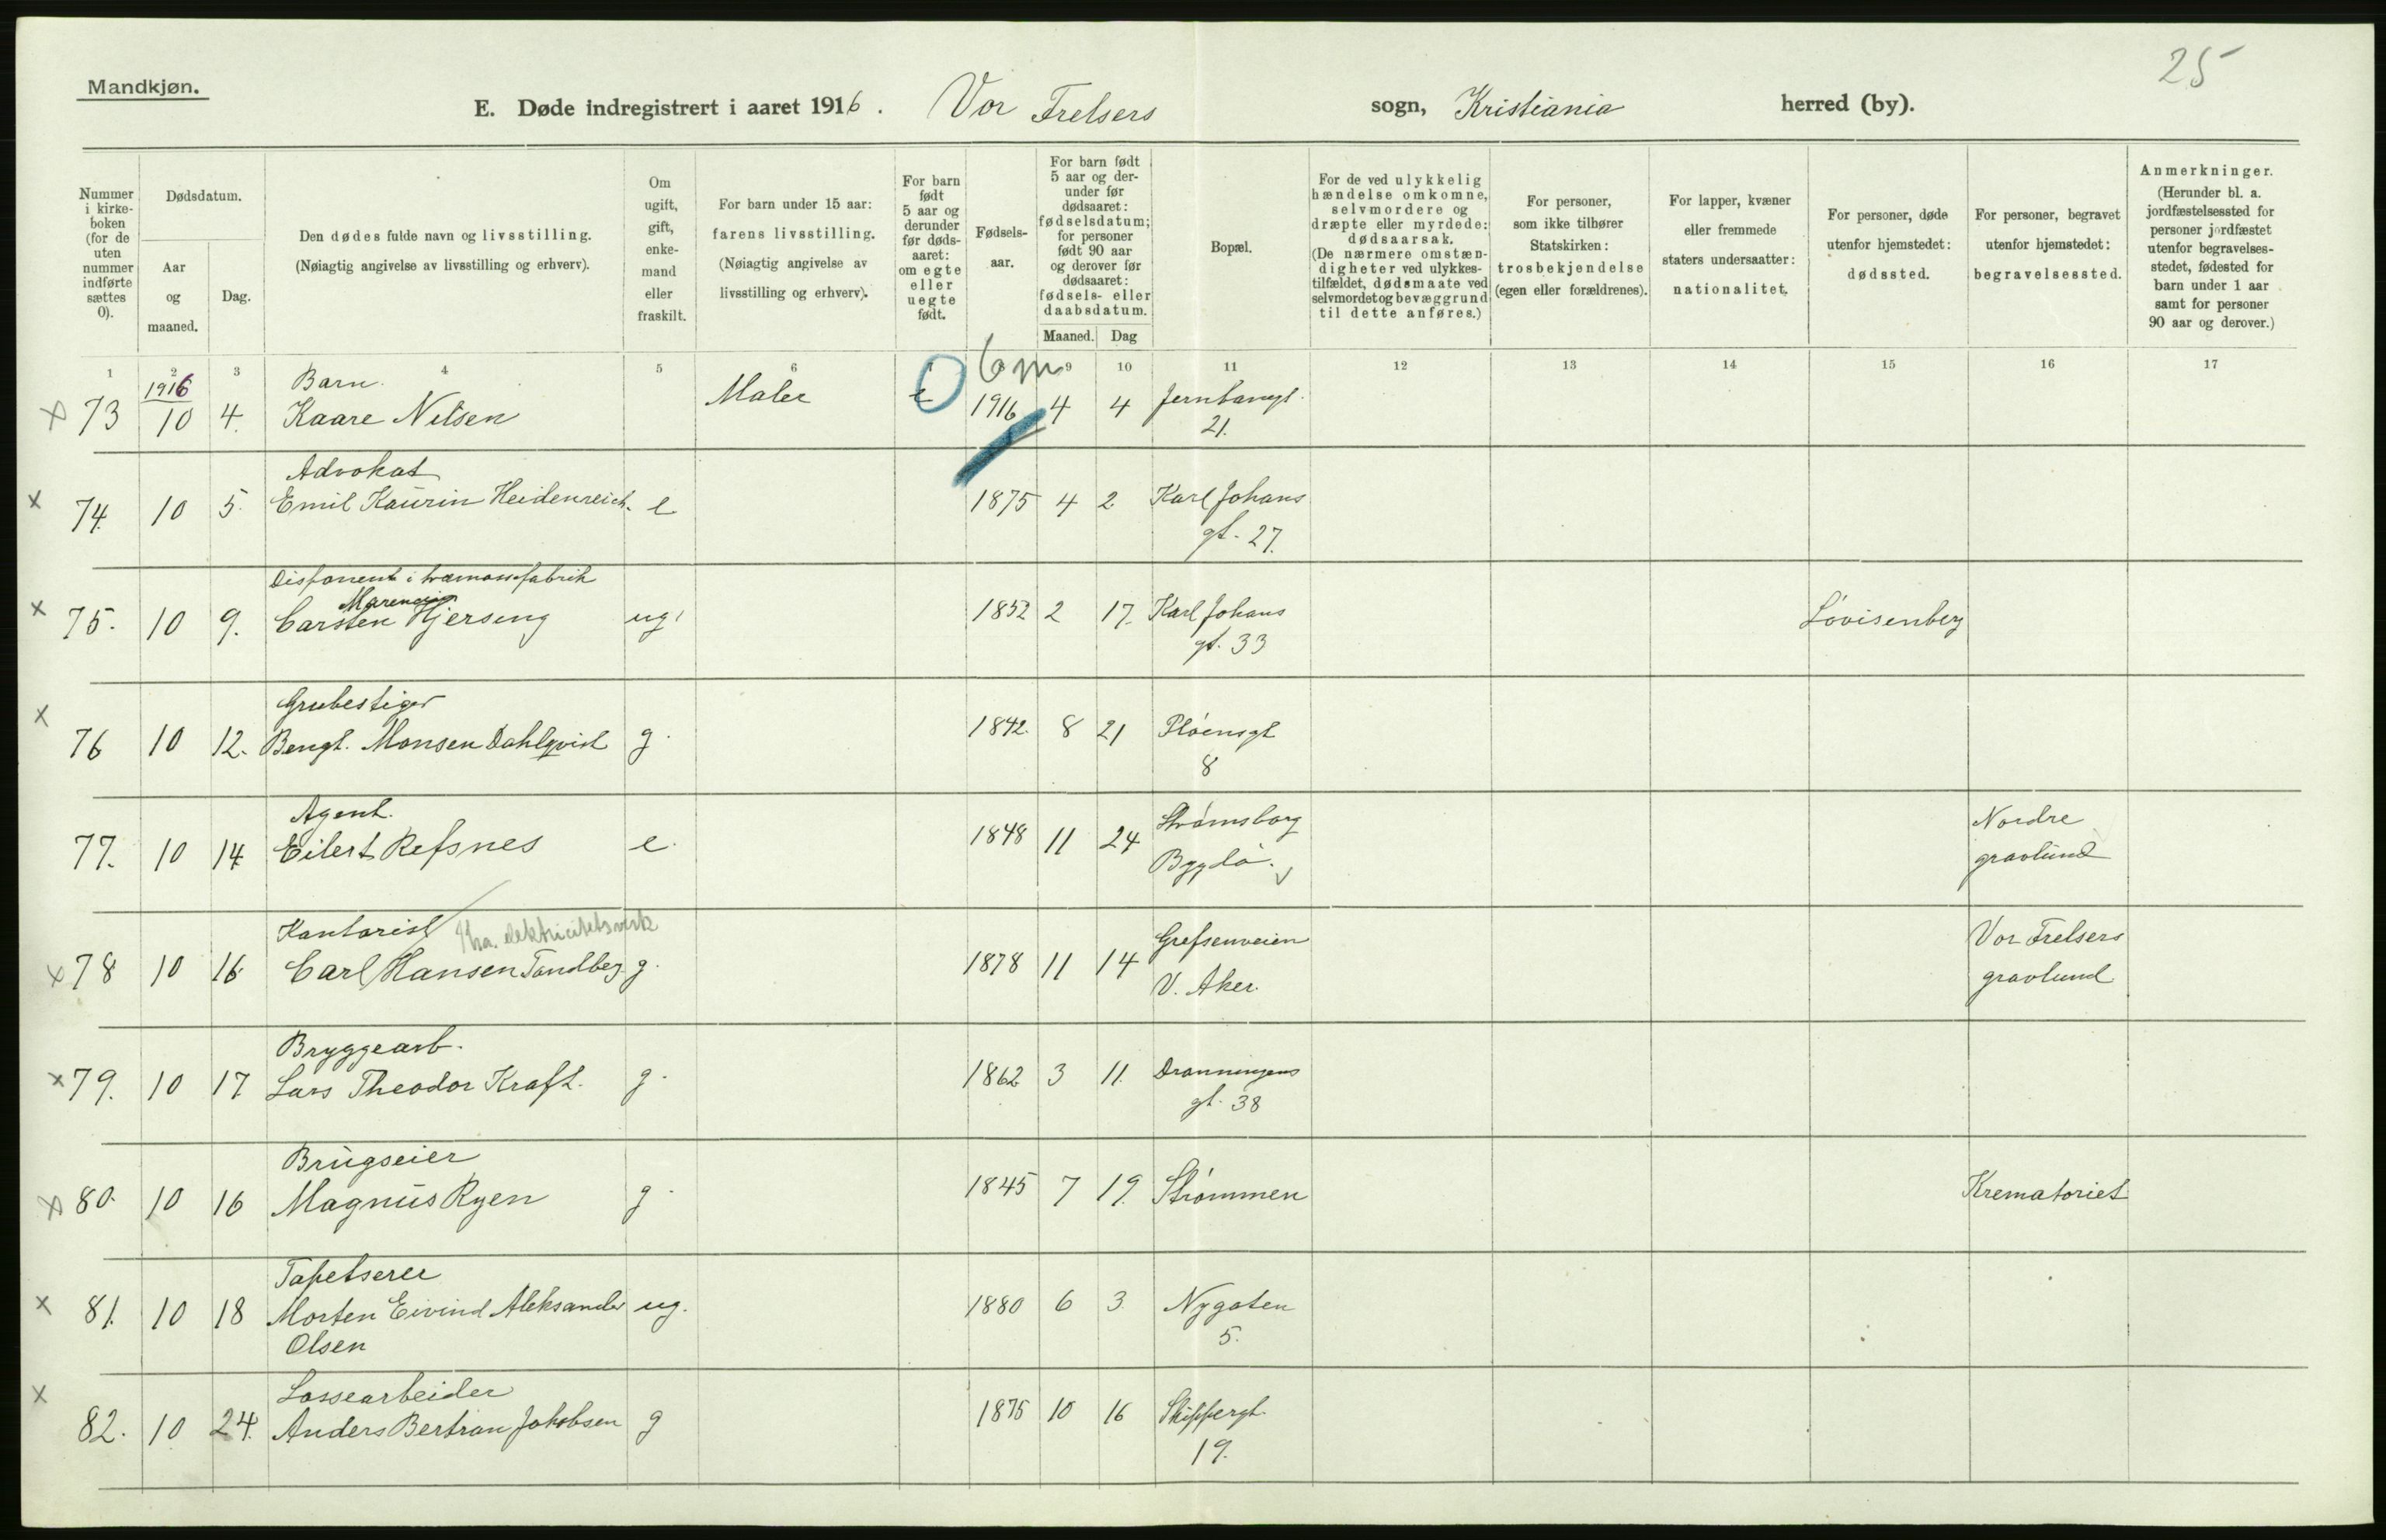 25
Mandkjøn.
E. Døde indregistrert i aaret 1916. Vor Frelsers sogn, Kristiania herred (by).
Nummer i kirkeboken (for de uten nummer indførte sættes 0).
Dødsdatum.
Aar og maaned.
Dag.
Den dødes fulde navn og livsstilling.
(Nøiagtig angivelse av livsstilling og erhverv).
Om ugift, gift, enkemand eller fraskilt.
For barn under 15 aar: farens livsstilling.
(Nøiagtig angivelse av livsstilling og erhverv).
For barn født 5 aar og derunder før dødsaaret: om egte eller uegte født.
Fødselsaar.
For barn født 5 aar og derunder før dødsaaret: fødselsdatum; for personer født 90 aar og derover før dødsaaret: fødsels- eller daabsdatum.
Maaned. Dag
Bopæl.
For de ved ulykkelig hændelse omkomne, selvmordere og dræpte eller myrdede: dødsaarsak.
(De nærmere omstændigheter ved ulykkestilfældet, dødsmaate ved selvmordet og bevæggrund til dette anføres.)
For personer, som ikke tilhører Statskirken: trosbekjendelse (egen eller forældrenes).
For lapper, kvæner eller fremmede staters undersaatter: nationalitet.
For personer, døde utenfor hjemstedet: dødssted.
For personer, begravet utenfor hjemstedet: begravelsessted.
Anmerkninger.
(Herunder bl. a. jordfæstelsessted for personer jordfæstet utenfor begravelsesstedet, fødested for barn under 1 aar samt for personer 90 aar og derover.)
1 2 3 4 5 6 7 9 10 11 12 13 14 15 16 17
6 m
1916 Barn.
x 73 10 4. Kaare Nilsen Maler e 1916 4 4 Jernbanegt.
21.
Advokat
x 74 10 5. Emil Kaurin Heidenreich. e 1875 4 2 Karl Johans
gt. 27.
Disponent i træmassefabrik
x 75. 10 9. Carsten Hjerseng ug. 1852 2 17. Karl Johans Lovisenberg
gt. 33
Grubestiger
x 76 10 12. Bengt. Monsen Dahlqvist g. 1842. 8 21 Pløensgt
8
Agent.
77. 10 14 Eilert Refsnes e. 1848 11 24 Strømsborg Nordre
Bygdø. gravlund
Kontorist Kra. elektricitetsverk
x 78 10 16 Carl Hansen Tandberg. g. 1878 11 14 Grefsenveien Vor Frelsers
V. Aker. gravlund
Bryggearb.
x 79. 10 17 Lars Theodor Kraft. g. 1862 3 11. Dronningens
gt. 38
Brugseier
x 80. 10 16 Magnus Ryen g. 1845 7 19. Strømmen Krematoriet
Tapetserer
x 81. 10 18 Morten Eivind Aleksander ug. 1880 6 3. Nygaten
Olsen 5.
Lossearbeider
x 82. 10 24. Anders Bertran Jakobsen g 1875 10 16 Skippergt.
19.